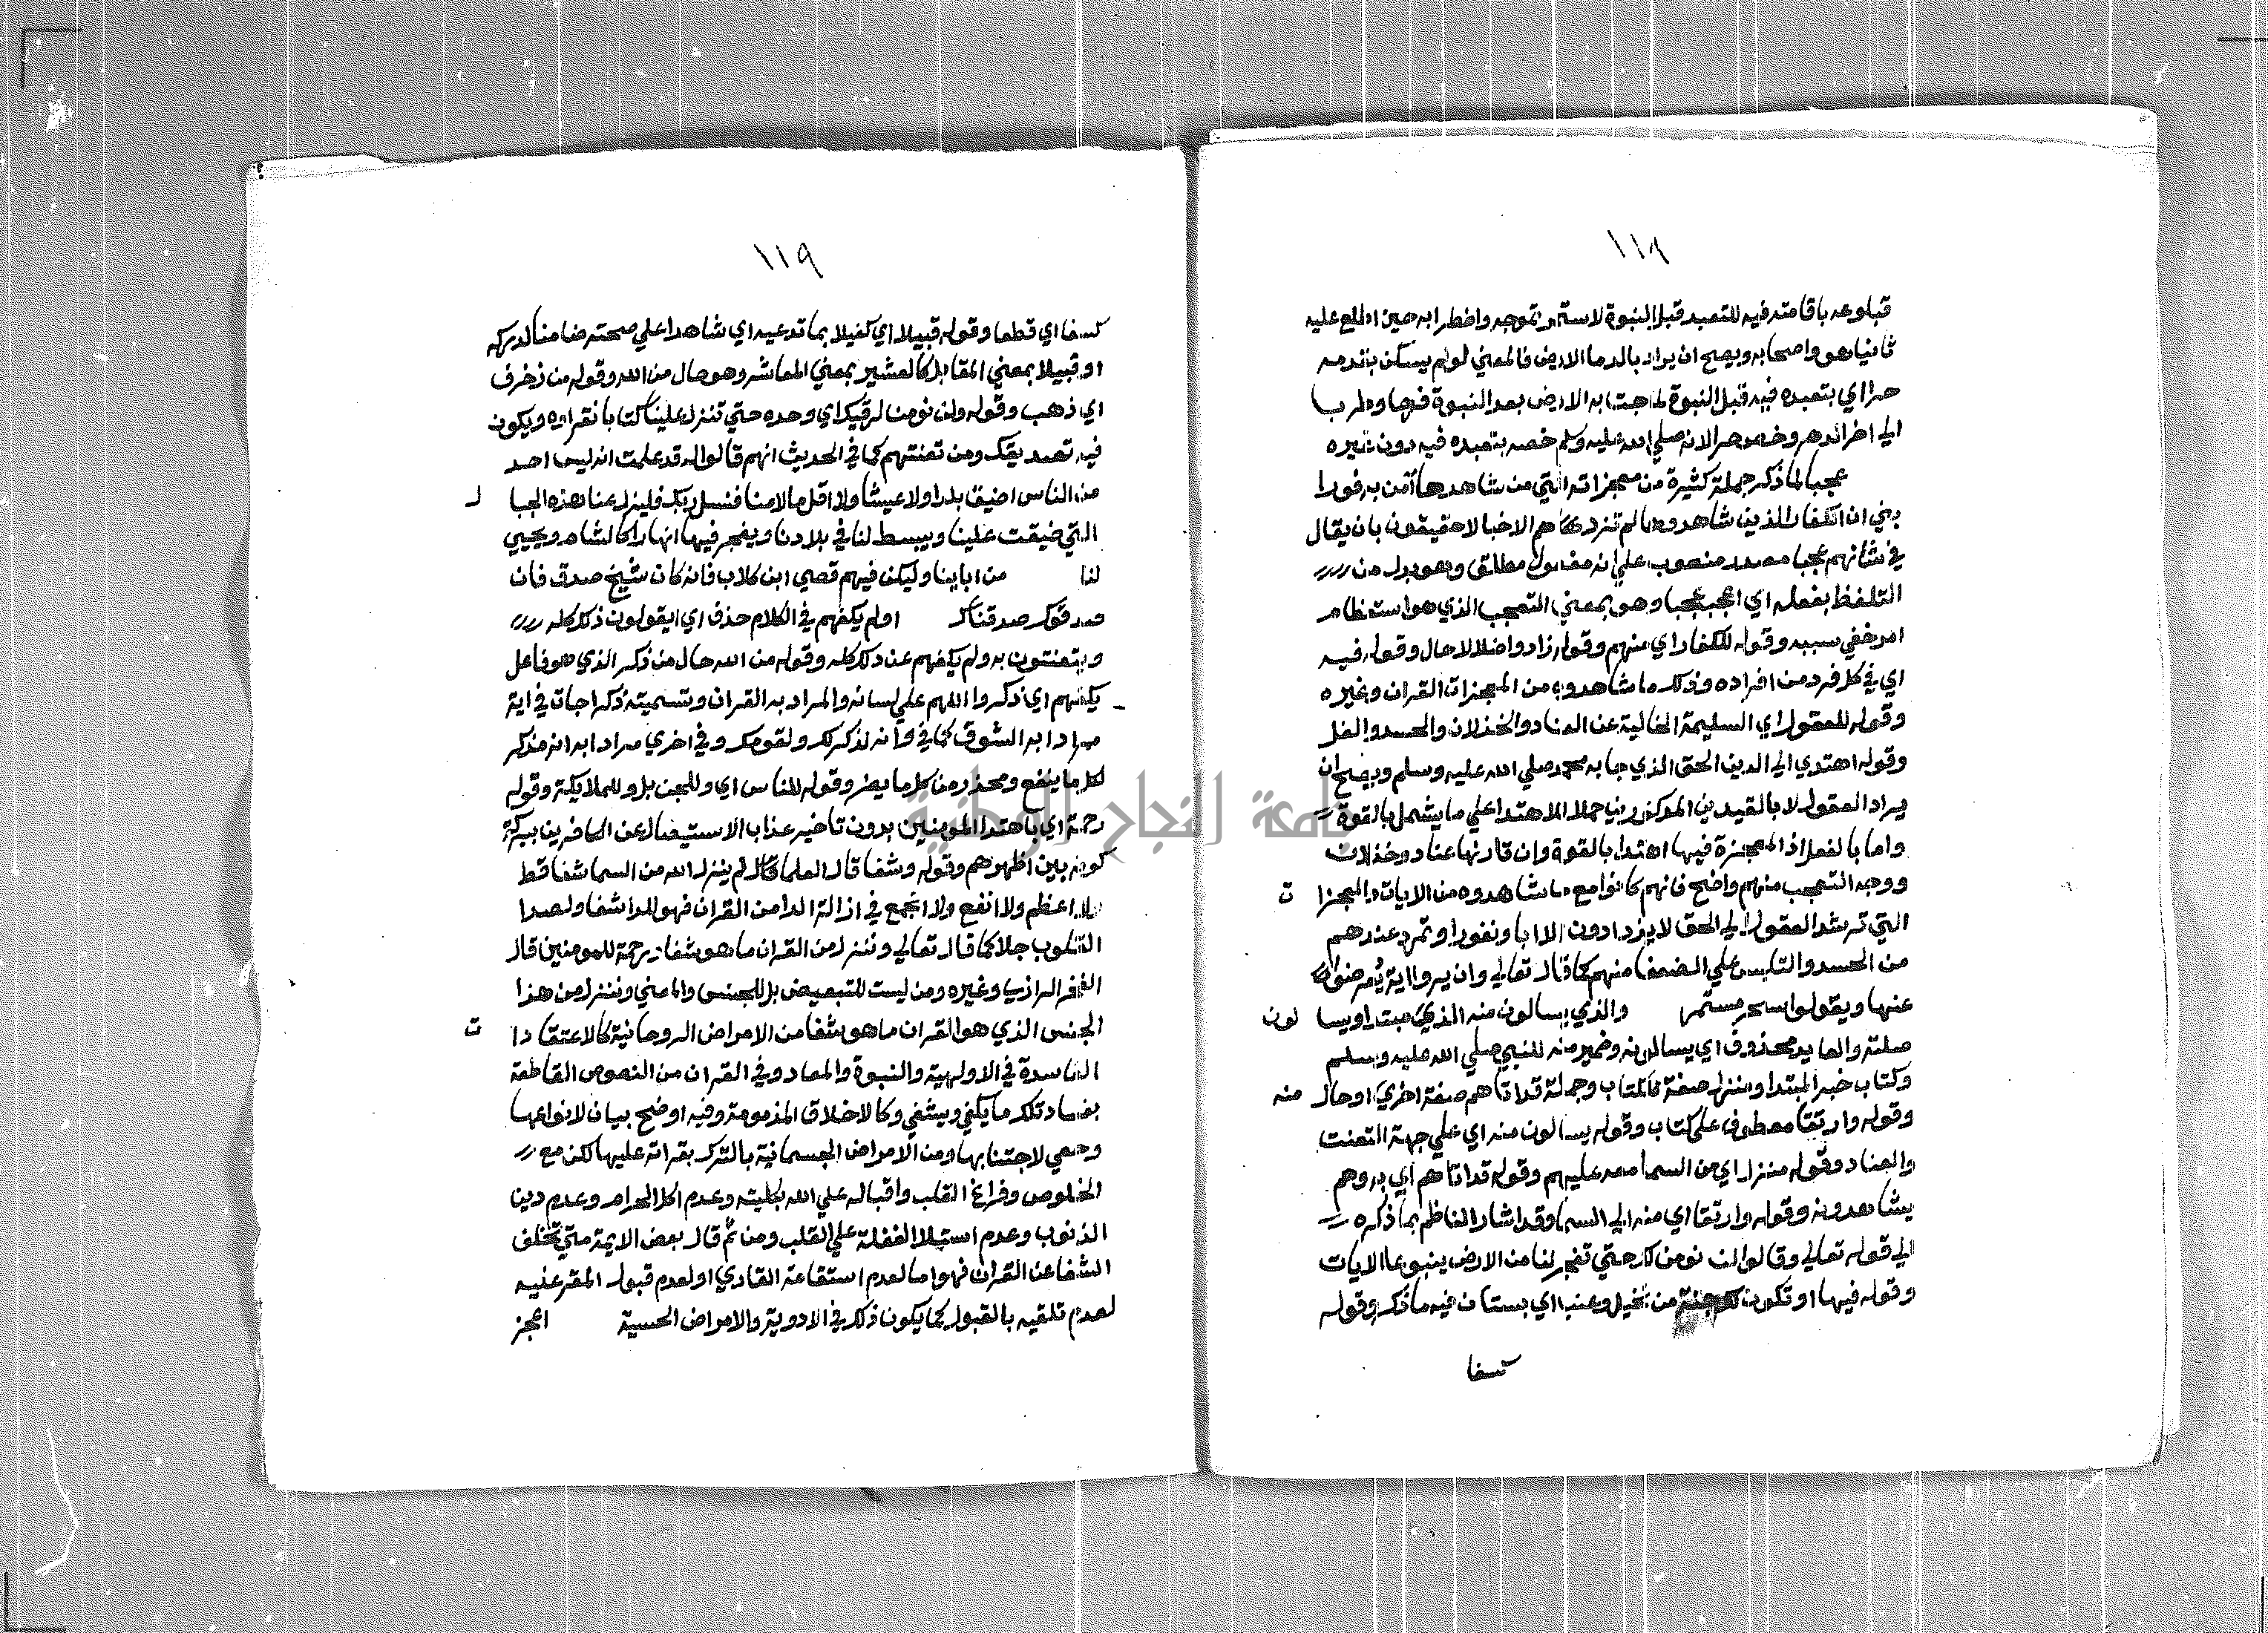 ١١٨
قبلوعه باقامته فيه للتعبد قبل النبوة لاستمر تموجه واضطرابه حين اطلع عليه
ثانيا هو واصحابه ويصح ان يراد بالدما الارض فالمعني لولم يسكن بقدمه
حرا اي بتعبده فيه قبل النبوة لماجت به الارض بعد النبوة فرحا وطربا
الي اخر الدهر وخص حر الانه صلي الله عليه وسلم خصه بتعبده فيه دون غيره
عجبا لما ذكر جملة كثيرة من معجزاته التي من شاهدها آمن به فورا
بين ان الكفار الذين شاهدوها لم تزدهم الاخبالا حقيقون بان يقال
في شانهم عجبا مصدر منصوب علي انه مفعول مطلق وهو بدل من
التلفظ بفعله اي اعجب عجبا وهو بمعني التعجب الذي هو استعظام
امر خفي سببه وقوله للكفار اي منهم وقوله زادوا ضلالا حال وقوله فيه
اي في كل فرد من افراده وذلك ما شاهدوه من المعجزات القران وغيره
وقوله للعقول اي السليمة الخالية عن العناد والخذلان والحسد والغل
وقوله اهتدي الي الدين الحق الذي جا به محمد صلي الله عليه وسلم ويصح ان
يراد العقول لا بالقيدين المذكورين حملا للاهتدا علي ما يشمل بالقوة
واما بالفعل اذ المعجزة فيها اهتدا بالقوة وان قارنها عناد وخذلان
ووجه التعجب منهم واضح فانهم كانوا مع ما شاهدوه من الايات والمعجزات
التي ترشد العقول الي الحق لا يزدادون الا ابا ونفورا وتمرد عندهم
من الحسد والتلبس علي الضعفا منهم كما قال تعالي وان يروا اية يعرضوا
عنها ويقولوا سحر مستمر والذي يسالون منه الذي مبتدا ويسالون
صلته والعايد محذوف اي يسالونه وضمير منه للنبي صلي الله عليه وسلم
وكتاب خبر المبتدا ومنزل صفة لكتاب وجملة قد اتاهم صفة اخري او حال منه
وقوله وارتقا معطوف علي كتاب وقوله يسالون منه اي علي جهة التعنت
والعناد وقوله منزل اي من السما معه عليهم وقوله قد اتاهم اي به وهم
يشاهدونه وقوله وارتقا اي منه الي السما وقد اشار الناظم بما ذكره
الي قوله تعالي وقالوا لن نومن لك حتي تفجر لنا من الارض ينبوعا الايات
وقوله فيها او تكون لك جنة من نخيل وعنب اي بستان فيه ما ذكر وقوله
كسفا
١١٩
كسفا اي قطعا وقوله قبيلا اي كفيلا بما تدعيه اي شاهدا علي صحته ضامنا لدركه
او قبيلا بمعني المقابل كالعشير بمعني المعاشر وهو حال من الله وقوله من زخرف
اي ذهب وقوله ولن نومن لرقيك اي وحده حتي تنزل علينا كتابا نقراوه ويكون
فيه تصديقك ومن تعنتهم كما في الحديث انهم قالوا له قد علمت انه ليس احد
من الناس اضيق بلدا ولا عيشا ولا اقل مالا منا فنسل ربك فليزل عنا هذه الجبال
التي ضيقت علينا ويبسط لنا في بلادنا ويفجر فيها انهارا كالشام ويحيي
لنا من اباينا وليكن فيهم قصي ابن كلاب فانه كان شيخ صدق فان
صدقوك صدقناك اولم يكفهم في الكلام حذف اي ايقولون ذلك كله
ويتعنتون به ولم يكفهم عن ذلك كله وقوله من الله حال من ذكر الذي هو فاعل
يكفهم اي ذكر والهم علي لسانه والمراد به القران وتسميته ذكرا جات في اية
مرادا به الشوق كما في وانه لذكر لك ولقومك وفي اخري مرادا به انه مذكر
لكل ما ينفع ومحذر من كل ما يضر وقوله للناس اي وللجن بل وللملايكة وقوله
رحمة اي باهتدا المومنين بدون تاخير عذاب الاستيصال عن الكافرين ببركة
كونه بين اظهرهم وقوله وشفا قال العلما لم ينزل الله من السما شفا قط
ولا اعظم ولا انفع ولا انجع في ازالة الدا من القران فهو للدا شفا ولصدا
القلوب جلا كما قال تعالي وننزل من القران ما هو شفا ورحمة للمومنين قال
الفخر الرازي وغيره ومن ليست للتبعيض بل للجنس والمعني وننزل من هذا
الجنس الذي هو القران ما هو شفا من الامراض الروحانية كالاعتقادات
الفاسدة في الاولهية والنبوة والمعاد وفي القران من النصوص القاطعة
بفساد تلك ما يكفي ويشفي وكالاخلاق المذمومة وفيه اوضح بيان لانواعها
وحمي لاجتنابها ومن الامراض الجسمانية بالتبرك بقراته عليها لكن مع
الخلوص وفراغ القلب واقباله علي الله بكليته وعدم اكل الحرام وعدم دين
الذنوب وعدم استيلا الغفلة علي القلب ومن ثم قال بعض الايمة متي تخلف
الشفا عن القران فهو اما لعدم استقاعة القاري او لعدم قبول المقر عليه
لعدم تلقيه بالقبول كما يكون ذلك في الادوية والامراض الحسية اعجز
جامعة النجاح الوطنية